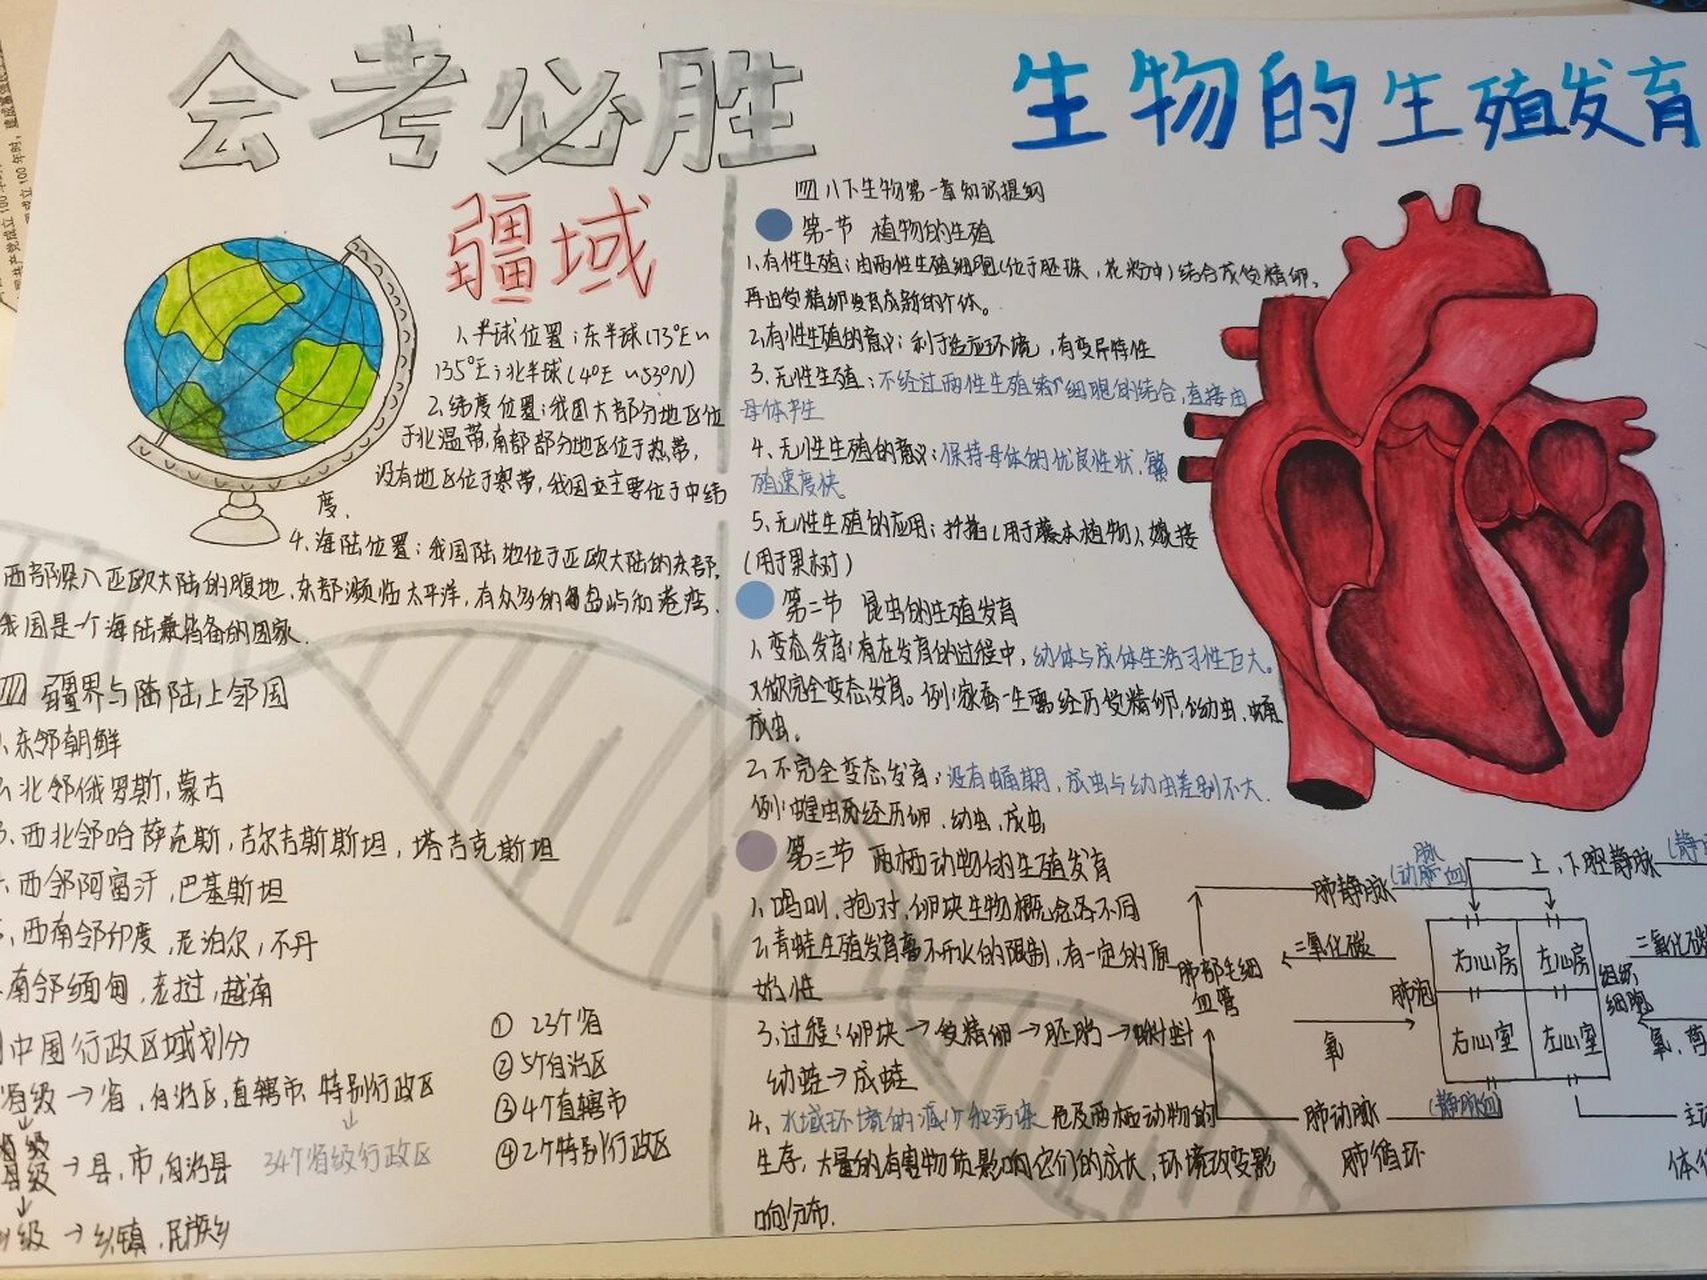 会考必胜
疆域
1、半球位置：东半球(73°E~
135°E；北半球(4°E~53°N)
2、纬度位置：我国大部分地区位
于北温带，南部部分地区位于热带，
没有地区位于寒带，我国主要位于中纬
度、
4、海陆位置：我国陆地位于亚欧大陆的东部，
西部深入亚欧大陆的腹地，东部濒临太平洋，有众多的岛屿和港湾，
我国是一个海陆兼备的国家、
四 疆界与陆上邻国
、东邻朝鲜
、北邻俄罗斯，蒙古
3、西北邻哈萨克斯，吉尔吉斯斯坦，塔吉克斯坦
、西邻阿富汗，巴基斯坦
、西南邻印度，尼泊尔，不丹
南邻缅甸，老挝，越南
中国行政区域划分
省级→省、自治区、直辖市、特别行政区
县级→县、市、自治县 34个省级行政区
级→乡、镇、民族乡
① 23个省
② 5个自治区
③ 4个直辖市
④ 2个特别行政区
生物的生殖发育
四 八下生物第一章知识提纲
第一节 植物的生殖
1、有性生殖：由两性生殖细胞(位于胚珠，花粉中)结合成受精卵，
再由受精卵发育成新的个体。
2、有性生殖的意义：利于适应环境，有变异特性
3、无性生殖：不经过两性生殖细胞的结合，直接由
母体产生
4、无性生殖的意义：保持母体的优良性状、繁
殖速度快
5、无性生殖的应用：扦插(用于藤本植物)、嫁接
(用于果树)
第二节 昆虫的生殖发育
1、变态发育：有在发育的过程中，幼体与成体生活习性巨大。
又做完全变态发育。例：家蚕一生需经历受精卵，幼虫、蛹
成虫。
2、不完全变态发育：没有蛹期，成虫与幼虫差别不大、
例：蝗虫要经历卵、幼虫、成虫
第三节 两栖动物的生殖发育
1、鸣叫，抱对，卵块生物概念各不同
2、青蛙生殖发育离不开水的限制，有一定的原
始性
3、过程：卵块→受精卵→胚胎→蝌蚪
幼蛙→成蛙
4、水域环境的减少和污染 危及两栖动物的
生存，大量的有害物质影响它们的成长，环境改变影
响分布.
肺静脉
脉
(动脉血)
上、下腔静脉
(静
肺部毛细
血管
二氧化碳
肺泡
氧
右心房
左心房
右心室
左心室
组织
细胞
二氧化碳
氧、
肺动脉
(静脉血)
主
肺循环
体